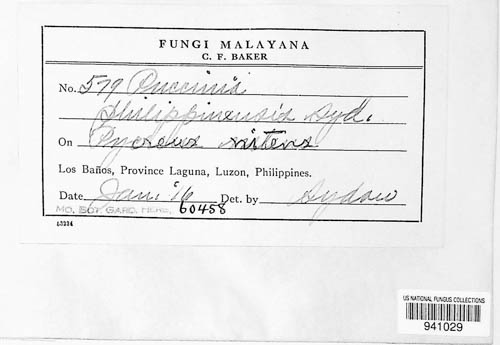 FUNGI MALAYANA
C. F. BAKER
No. 579 Puccinia
philippinensis Syd.
On Pycreus nitens
Los Baños, Province Laguna, Luzon, Philippines.
Date Jan. '16 Det. by Sydow
MO. BOT. GARD. HERB. 60458
53234
US NATIONAL FUNGUS COLLECTIONS
941029